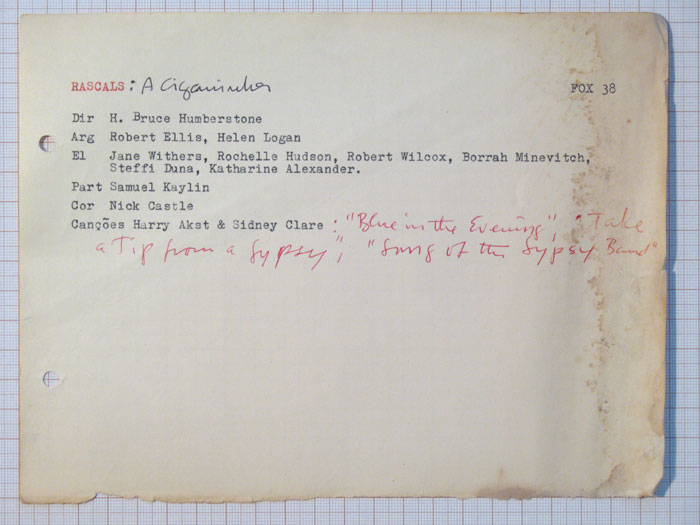 RASCALS: A Ciganinha FOX 38
Dir H. Bruce Humberstone
Arg Robert Ellis, Helen Logan
El Jane Withers, Rochelle Hudson, Robert Wilcox, Borrah Minevitch,
Steffi Duna, Katharine Alexander.
Part Samuel Kaylin
Cor Nick Castle
Canções Harry Akst & Sidney Clare: "Blue in the Evening", "Take
a Tip from a Gypsy", "Song of the Gypsy Band"